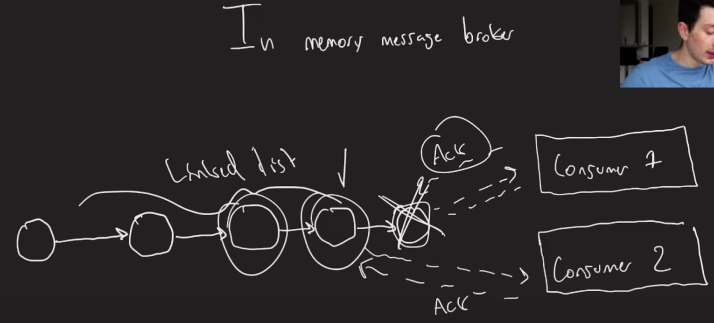 In memory message broker
Linked list
Ack
Consumer 1
Consumer 2
Ack